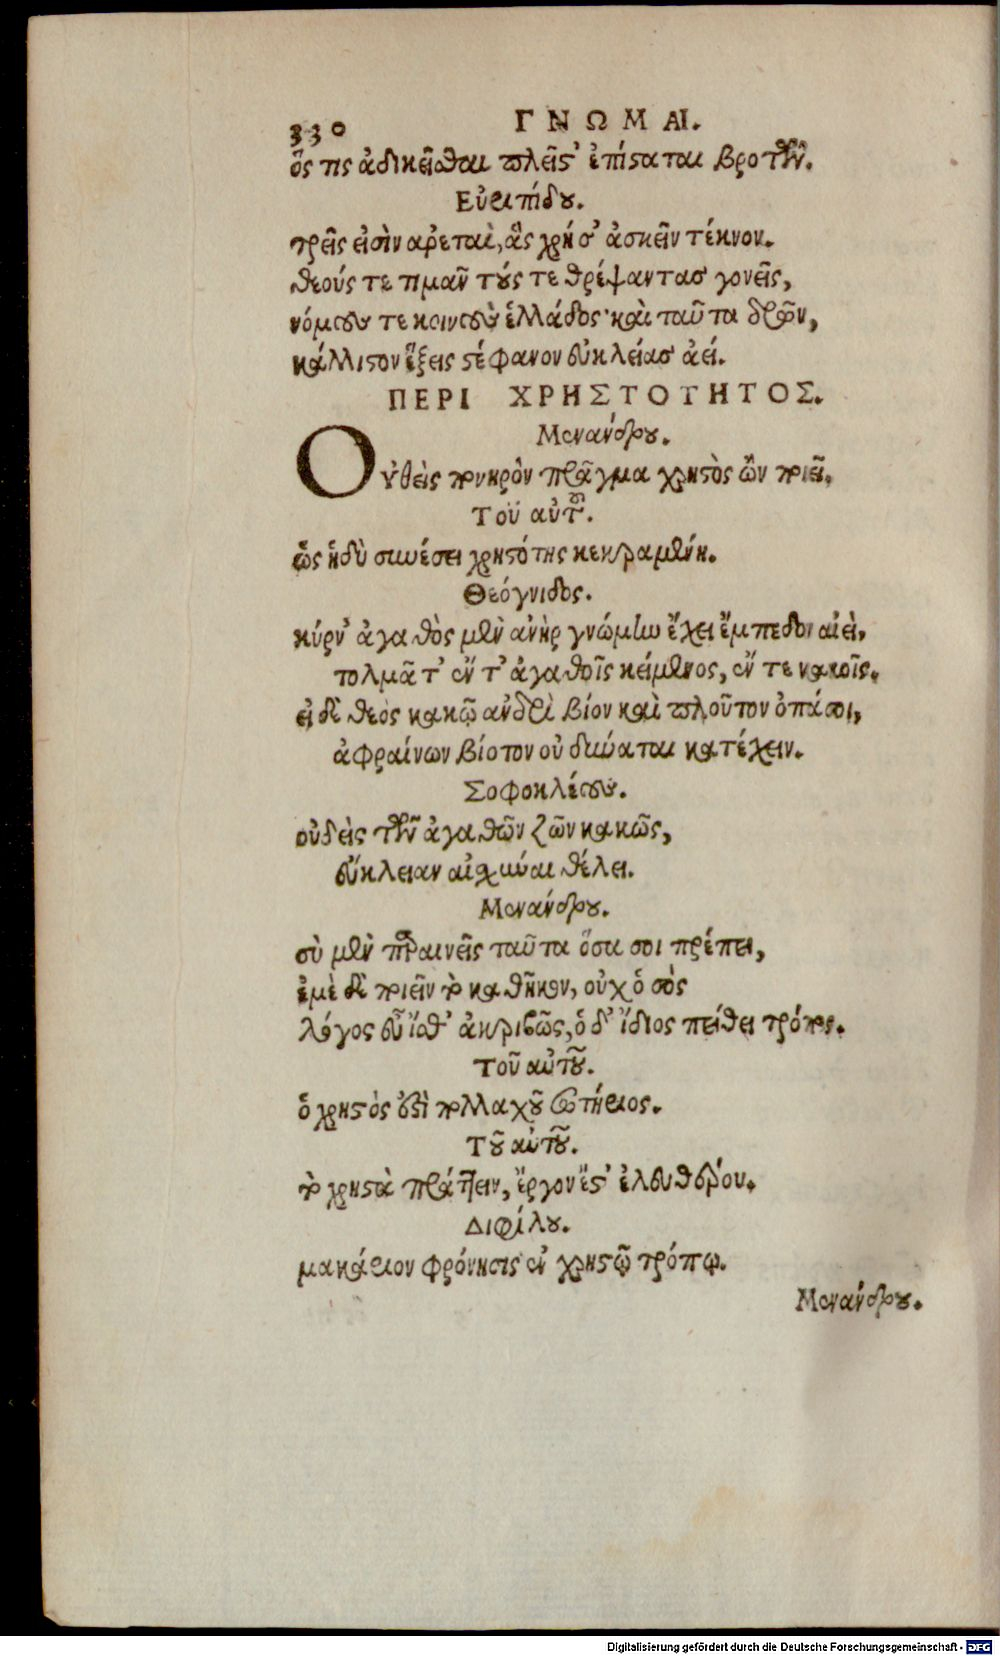 330 ΓΝΩΜΑΙ.
ὅς τις ἀδικεῖσθαι πλεῖστ' ἐπίσταται βροτῶν.
Εὐριπίδου.
τρεῖς εἰσὶν ἀρεταὶ, ἃς χρή σ' ἀσκεῖν τέκνον.
θεούς τε τιμᾶν τούς τε θρέψαντασ γονεῖς,
νόμους τε κοινοὺς ἑλλάδος· καὶ ταῦτα δρῶν,
κάλλιστον ἕξεις στέφανον εὐκλείασ ἀεί.
ΠΕΡΙ ΧΡΗΣΤΟΤΗΤΟΣ.
Μενάνδρου.
Οὐθεὶς πονηρὸν πρᾶγμα χρηστὸς ὢν ποιεῖ.
Τοῦ αὐτοῦ.
ὡς ἡδὺ συνέσει χρηστότης κεκραμένη.
Θεόγνιδος.
κύρν' ἀγαθὸς μὲν ἀνὴρ γνώμην ἔχει ἔμπεδον αἰεὶ,
τολμᾶ τ' ἔν τ' ἀγαθοῖς κείμενος, ἔν τε κακοῖς.
εἰ δὲ θεὸς κακῷ ἀνδρὶ βίον καὶ πλοῦτον ὀπάσοι,
ἀφραίνων βίοτον οὐ δύναται κατέχειν.
Σοφοκλέους.
οὐδεὶς τῶν ἀγαθῶν ζῶν κακῶς,
εὔκλειαν αἰσχύναι θέλει.
Μενάνδρου.
σὺ μὲν παραινεῖς ταῦτα ὅσα σοι πρέπει,
ἐμὲ δὲ ποιεῖν τὸ καθῆκον, οὐχ ὁ σὸς
λόγος εὖ ἴσθ' ἀκριβῶς, ὁ δ' ἴδιος πείθει τρόπος.
Τοῦ αὐτοῦ.
ὁ χρηστὸς ἐστὶ πολλαχοῦ σωτήριος.
Τοῦ αὐτοῦ.
τὸ χρηστὰ πράττειν, ἔργον ἔστ' ἐλευθέρου.
Διφίλου.
μακάριον φρόνησις ἐν χρηστῷ τρόπῳ.
Μενάνδρου.
Digitalisierung gefördert durch die Deutsche Forschungsgemeinschaft - DFG